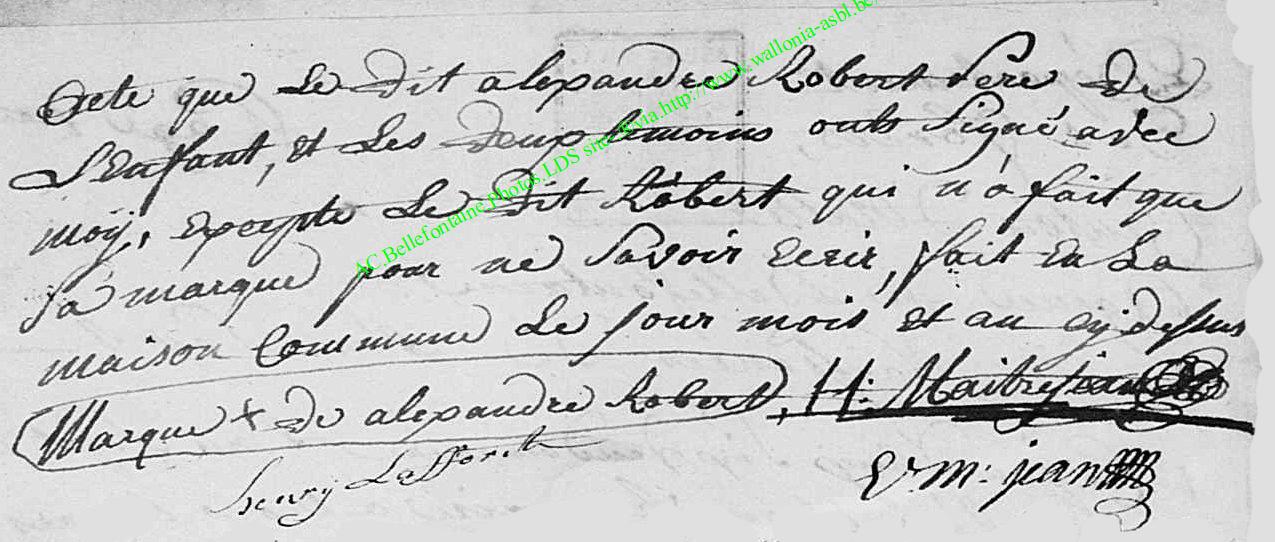 acte que Le Dit alexandre Robert Pere De
L'Enfant, et Les Deux temoins onts Signé avec
moÿ, excepte Le Dit Robert qui n'a fait que
sa marque pour ne Savoir Ecrir, fait en La
maison Commune Le jour mois et an cÿ dessus
Marque + De alexandre Robert, H: Maitrejean
henry Lafforet
m: jean
AC.Bellefontaine.Photos.LDS sur via.http://www.wallonia-asbl.be/